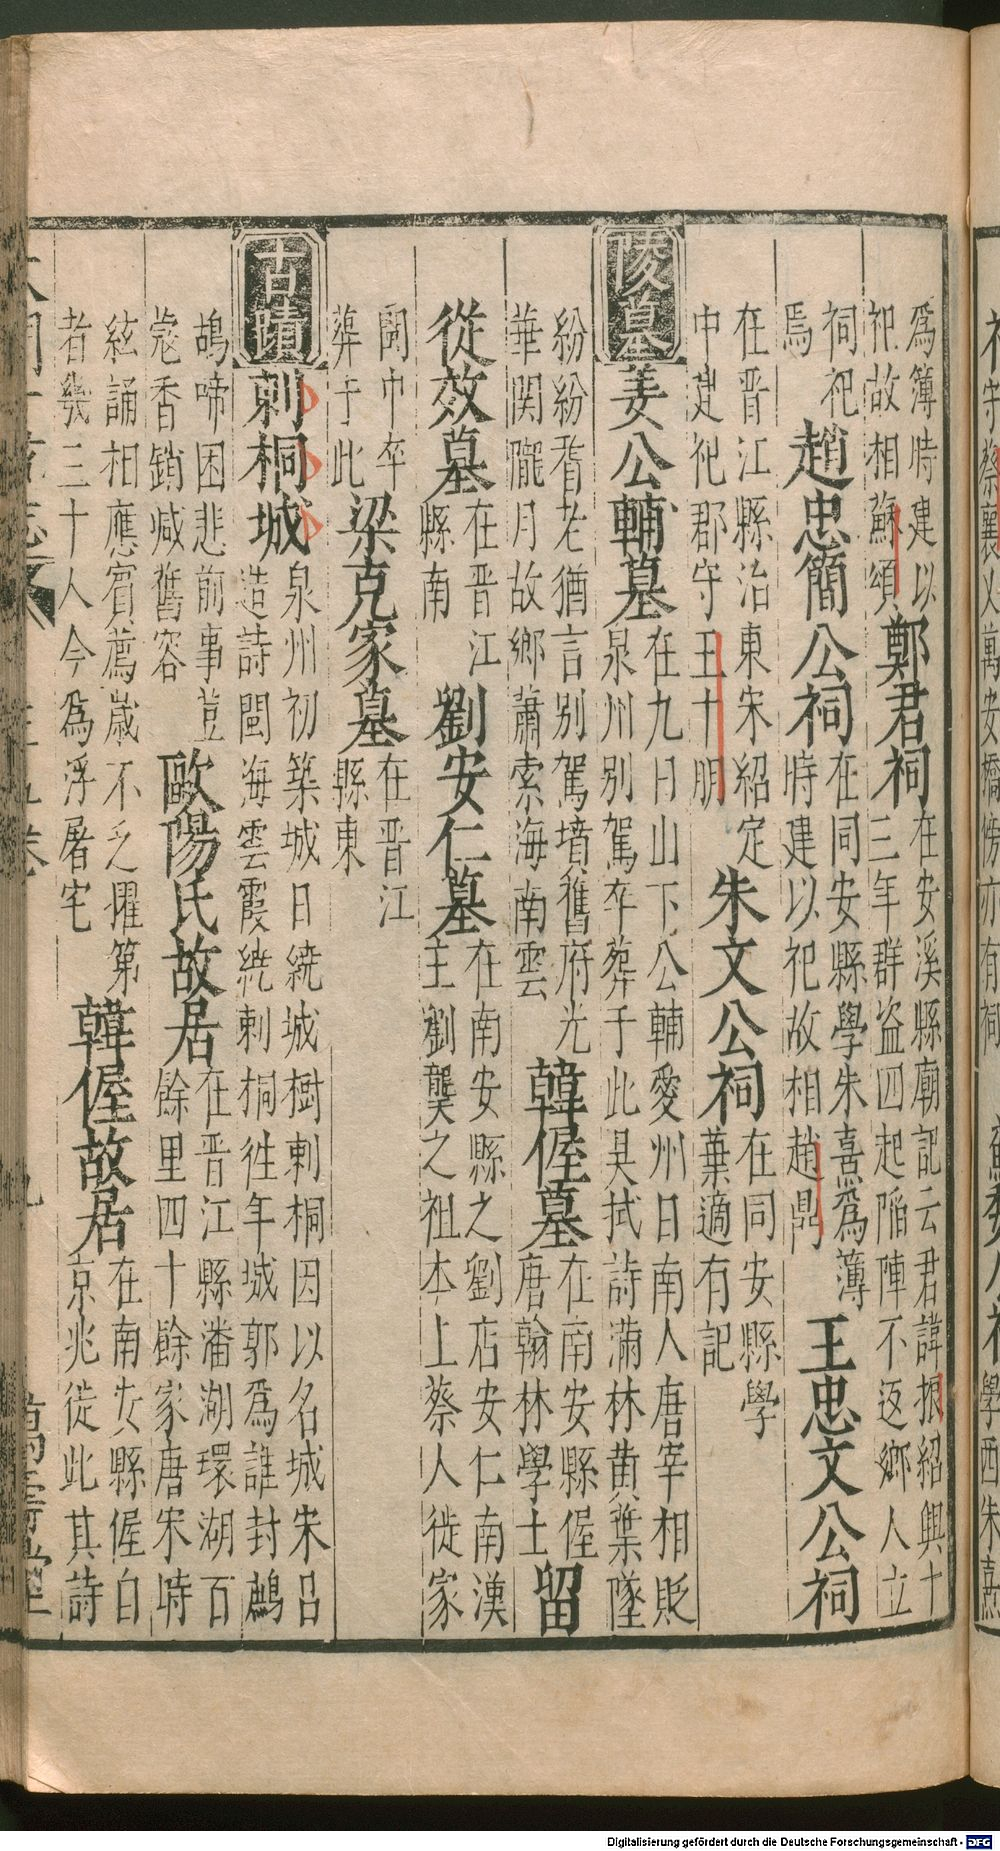 爲簿時建以祀故相蘇頌鄭君祠在安溪縣廟記云君諱振紹興十三年群盗四起陷陣不返鄉人立
祠祀焉趙忠簡公祠在同安縣學朱熹爲薄時建以祀故相趙鼎王忠文公祠
在晉江縣治東宋紹定中建祀郡守王十朋朱文公祠在同安縣學葉適有記
陵墓姜公輔墓在九日山下公輔愛州日南人唐宰相貶泉州別駕卒葬于此吳拭詩滿林黄葉墜
紛紛耆老猶言别駕墳舊府光華関隴月故鄉蕭索海南雲韓偓墓在南安縣偓唐翰林學士留
從效墓在晉江縣南劉安仁墓在南安縣之劉店安仁南漢主劉龑之祖本上蔡人徙家
閩中卒葬于此梁克家墓在晉江縣東
古蹟刺桐城泉州初築城日繞城樹刺桐因以名城宋呂造詩閩海雲霞繞刺桐徃年城郭爲誰封鷓
鴣啼困悲前事荳蔻香銷减舊容歐陽氏故居在晉江縣潘湖環湖百餘里四十餘家唐宋時
絃誦相應賓薦歲不乏擢第者幾三十人今爲浮屠宅韓偓故居在南安縣偓自京兆徙此其詩
Digitalisierung gefördert durch die Deutsche Forschungsgemeinschaft - DFG